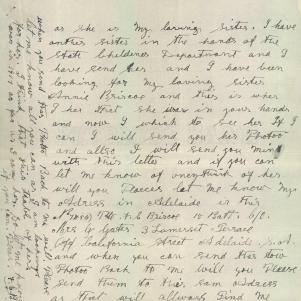 as she is my loving sister. I have
another sister in the hands of the
State Childrens Department and I
have send her and I have been
looking for my loving sister
Annie Briscoe and this is when
I her that she was in your hands
and now I which to see her if I
can I will send you her Photos
and allso I will send you mine
with this letter and if you can
let me know of anythink of her
will you Pleaces let me know my
Adress in Adelaide is this
Briscoe 10 Batt.
3 Somerset Terrace
Off California Street Adelaide S.A.
and when you can send this
Photos Back to me will you Please
send them to this sam Adress
as that will allways Find me
when you send this Photos Back to me will Please
as you can as I am
for her. I find that this